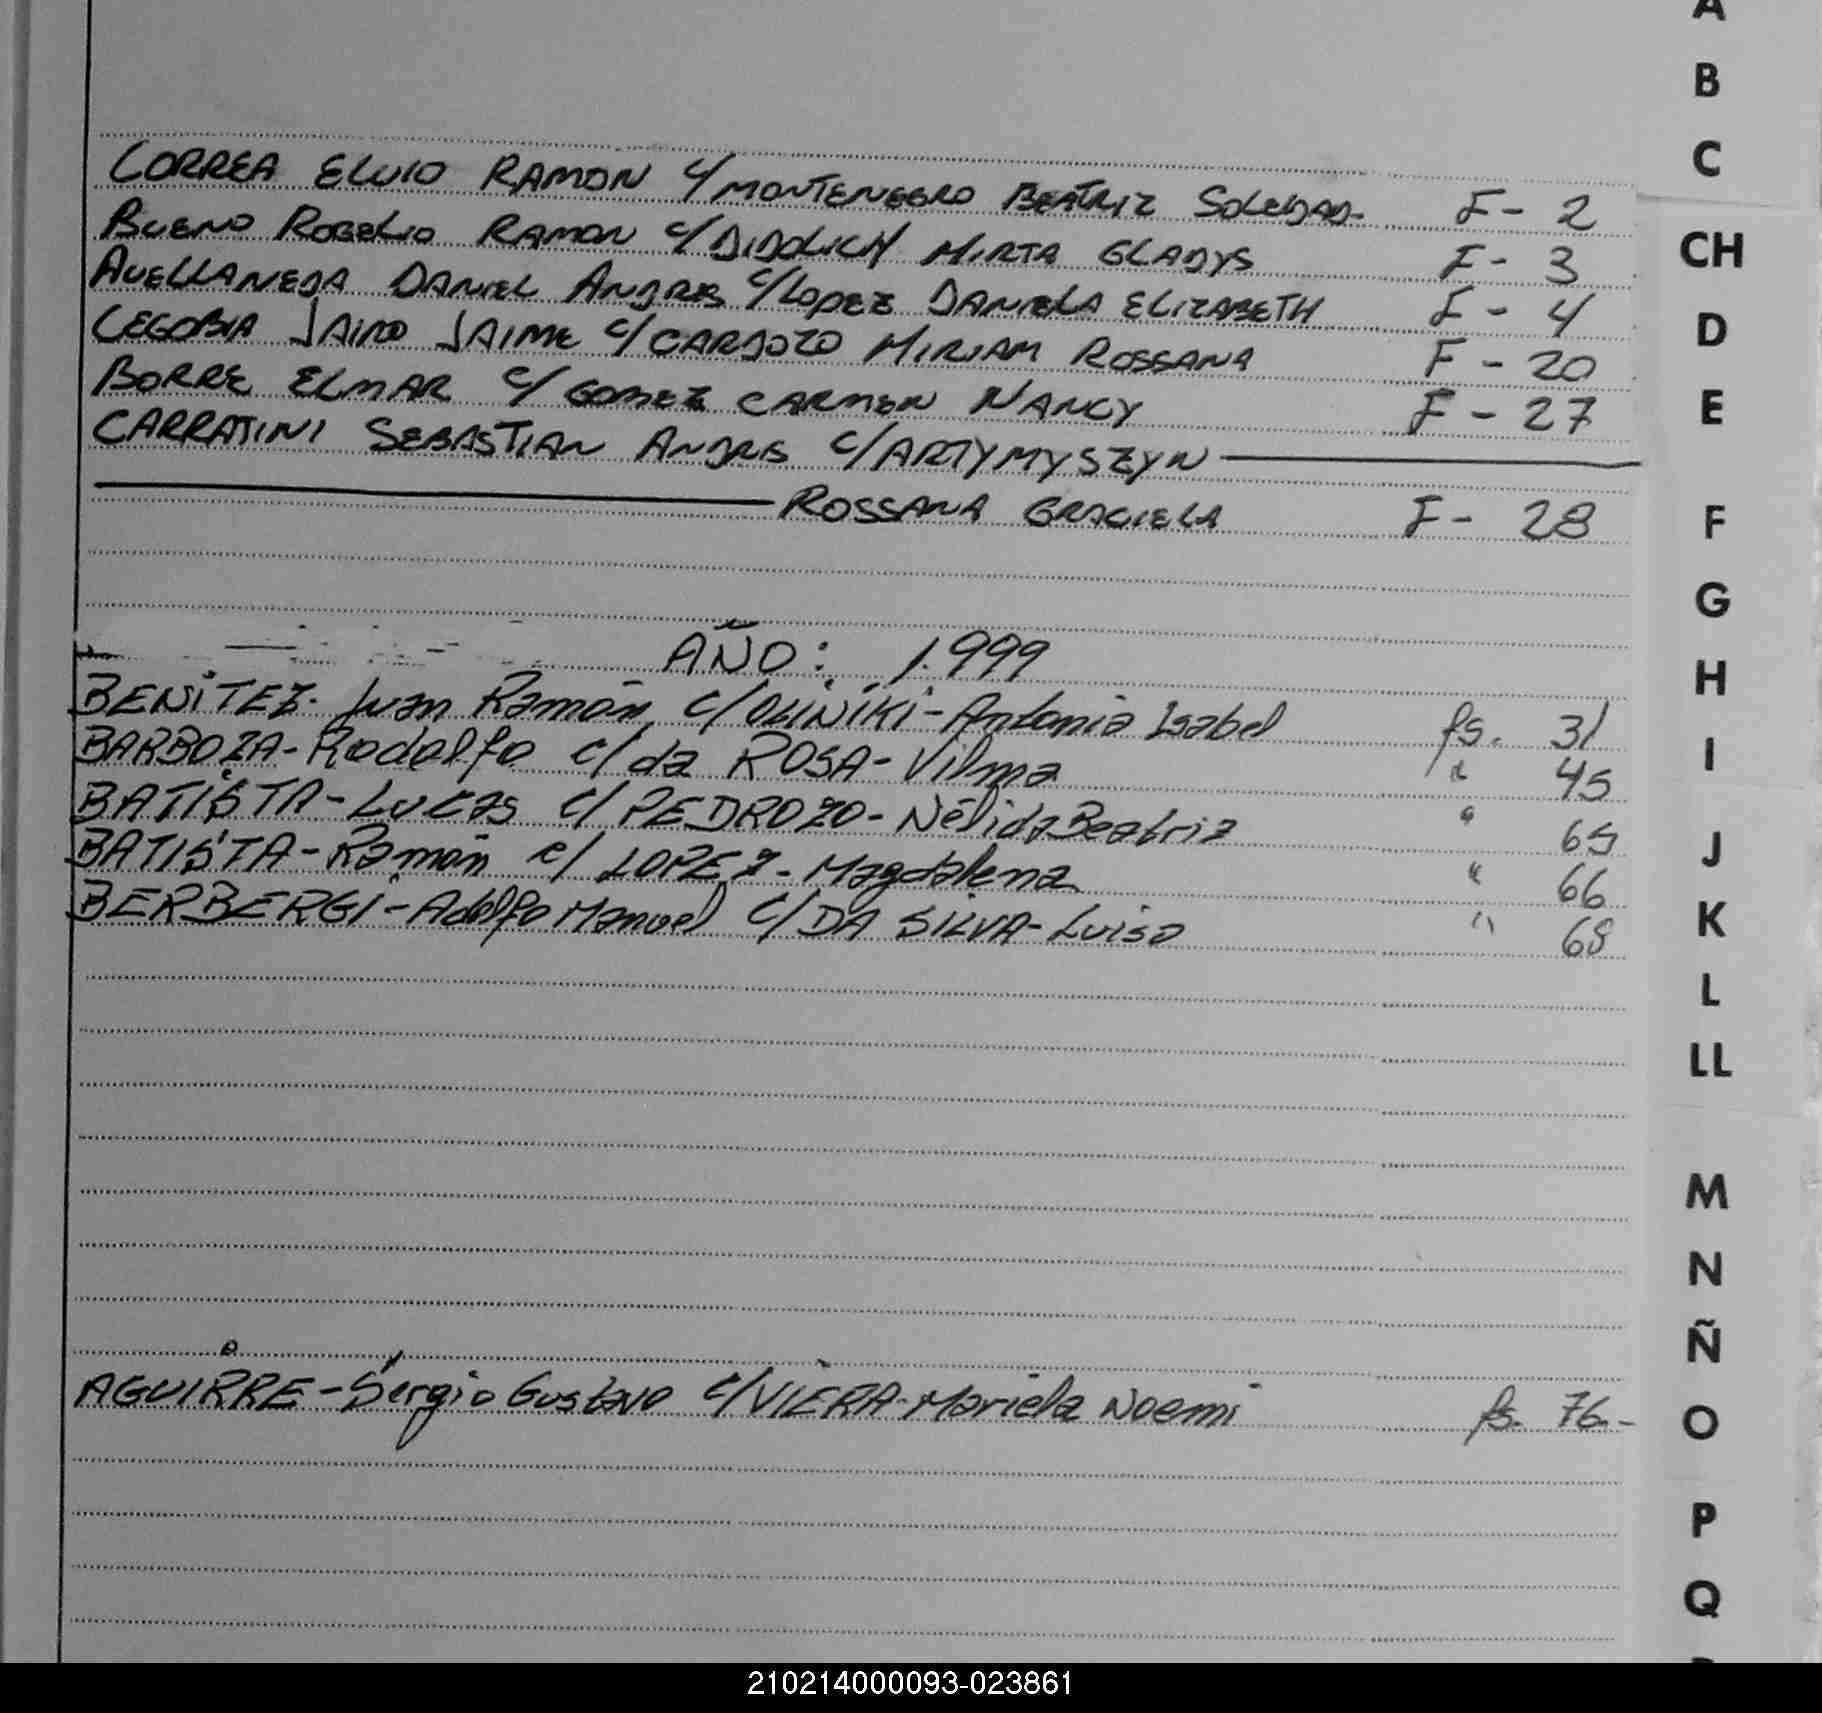 A
B
C
CH
D
E
F
G
H
I
J
K
L
LL
M
N
Ñ
O
P
Q
CORREA ELVIO RAMON c/MONTENEGRO BEATRIZ SOLEDAD- F- 2
BUENO ROGELIO RAMON c/DIDOLICH MIRTA GLADYS F- 3
AVELLANEDA DANIEL ANDRES c/LOPEZ DANIELA ELIZABETH F- 4
CEGOBIA JAIRO JAIME c/CARDOZO MIRIAM ROSSANA F- 20
BORRE ELMAR c/ GOMEZ CARMEN NANCY F- 27
CARRATINI SEBASTIAN ANDRES c/ARTYMYSZYN
ROSSANA GRACIELA F- 28
AÑO: 1.999
BENITEZ- Juan Ramón c/OLINIKI- Antonia Isabel fs. 31
BARBOZA- Rodolfo c/da ROSA- Vilma " 45
BATISTA- Lucas c/ PEDROZO- Nélida Beatriz " 65
BATISTA- Ramón c/ LOPEZ- Magdalena " 66
BERBERGI- Adolfo Manuel c/DA SILVA- Luisa " 68
AGUIRRE- Sergio Gustavo c/VIERA- Mariela Noemi fs. 76.-
210214000093-023861